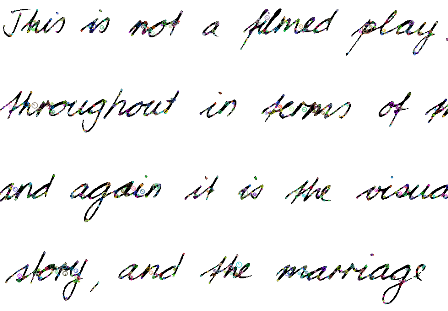 This is not a filmed play
throughout in terms of
and again it is the
story, and the marriage